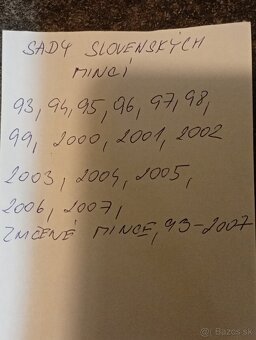 SADY SLOVENSKÝCH
MINCÍ
93, 94, 95, 96, 97, 98,
99, 2000, 2001, 2002
2003, 2004, 2005,
2006, 2007,
ZNIČENÉ MINCE, 93-2007
© Bazos.sk